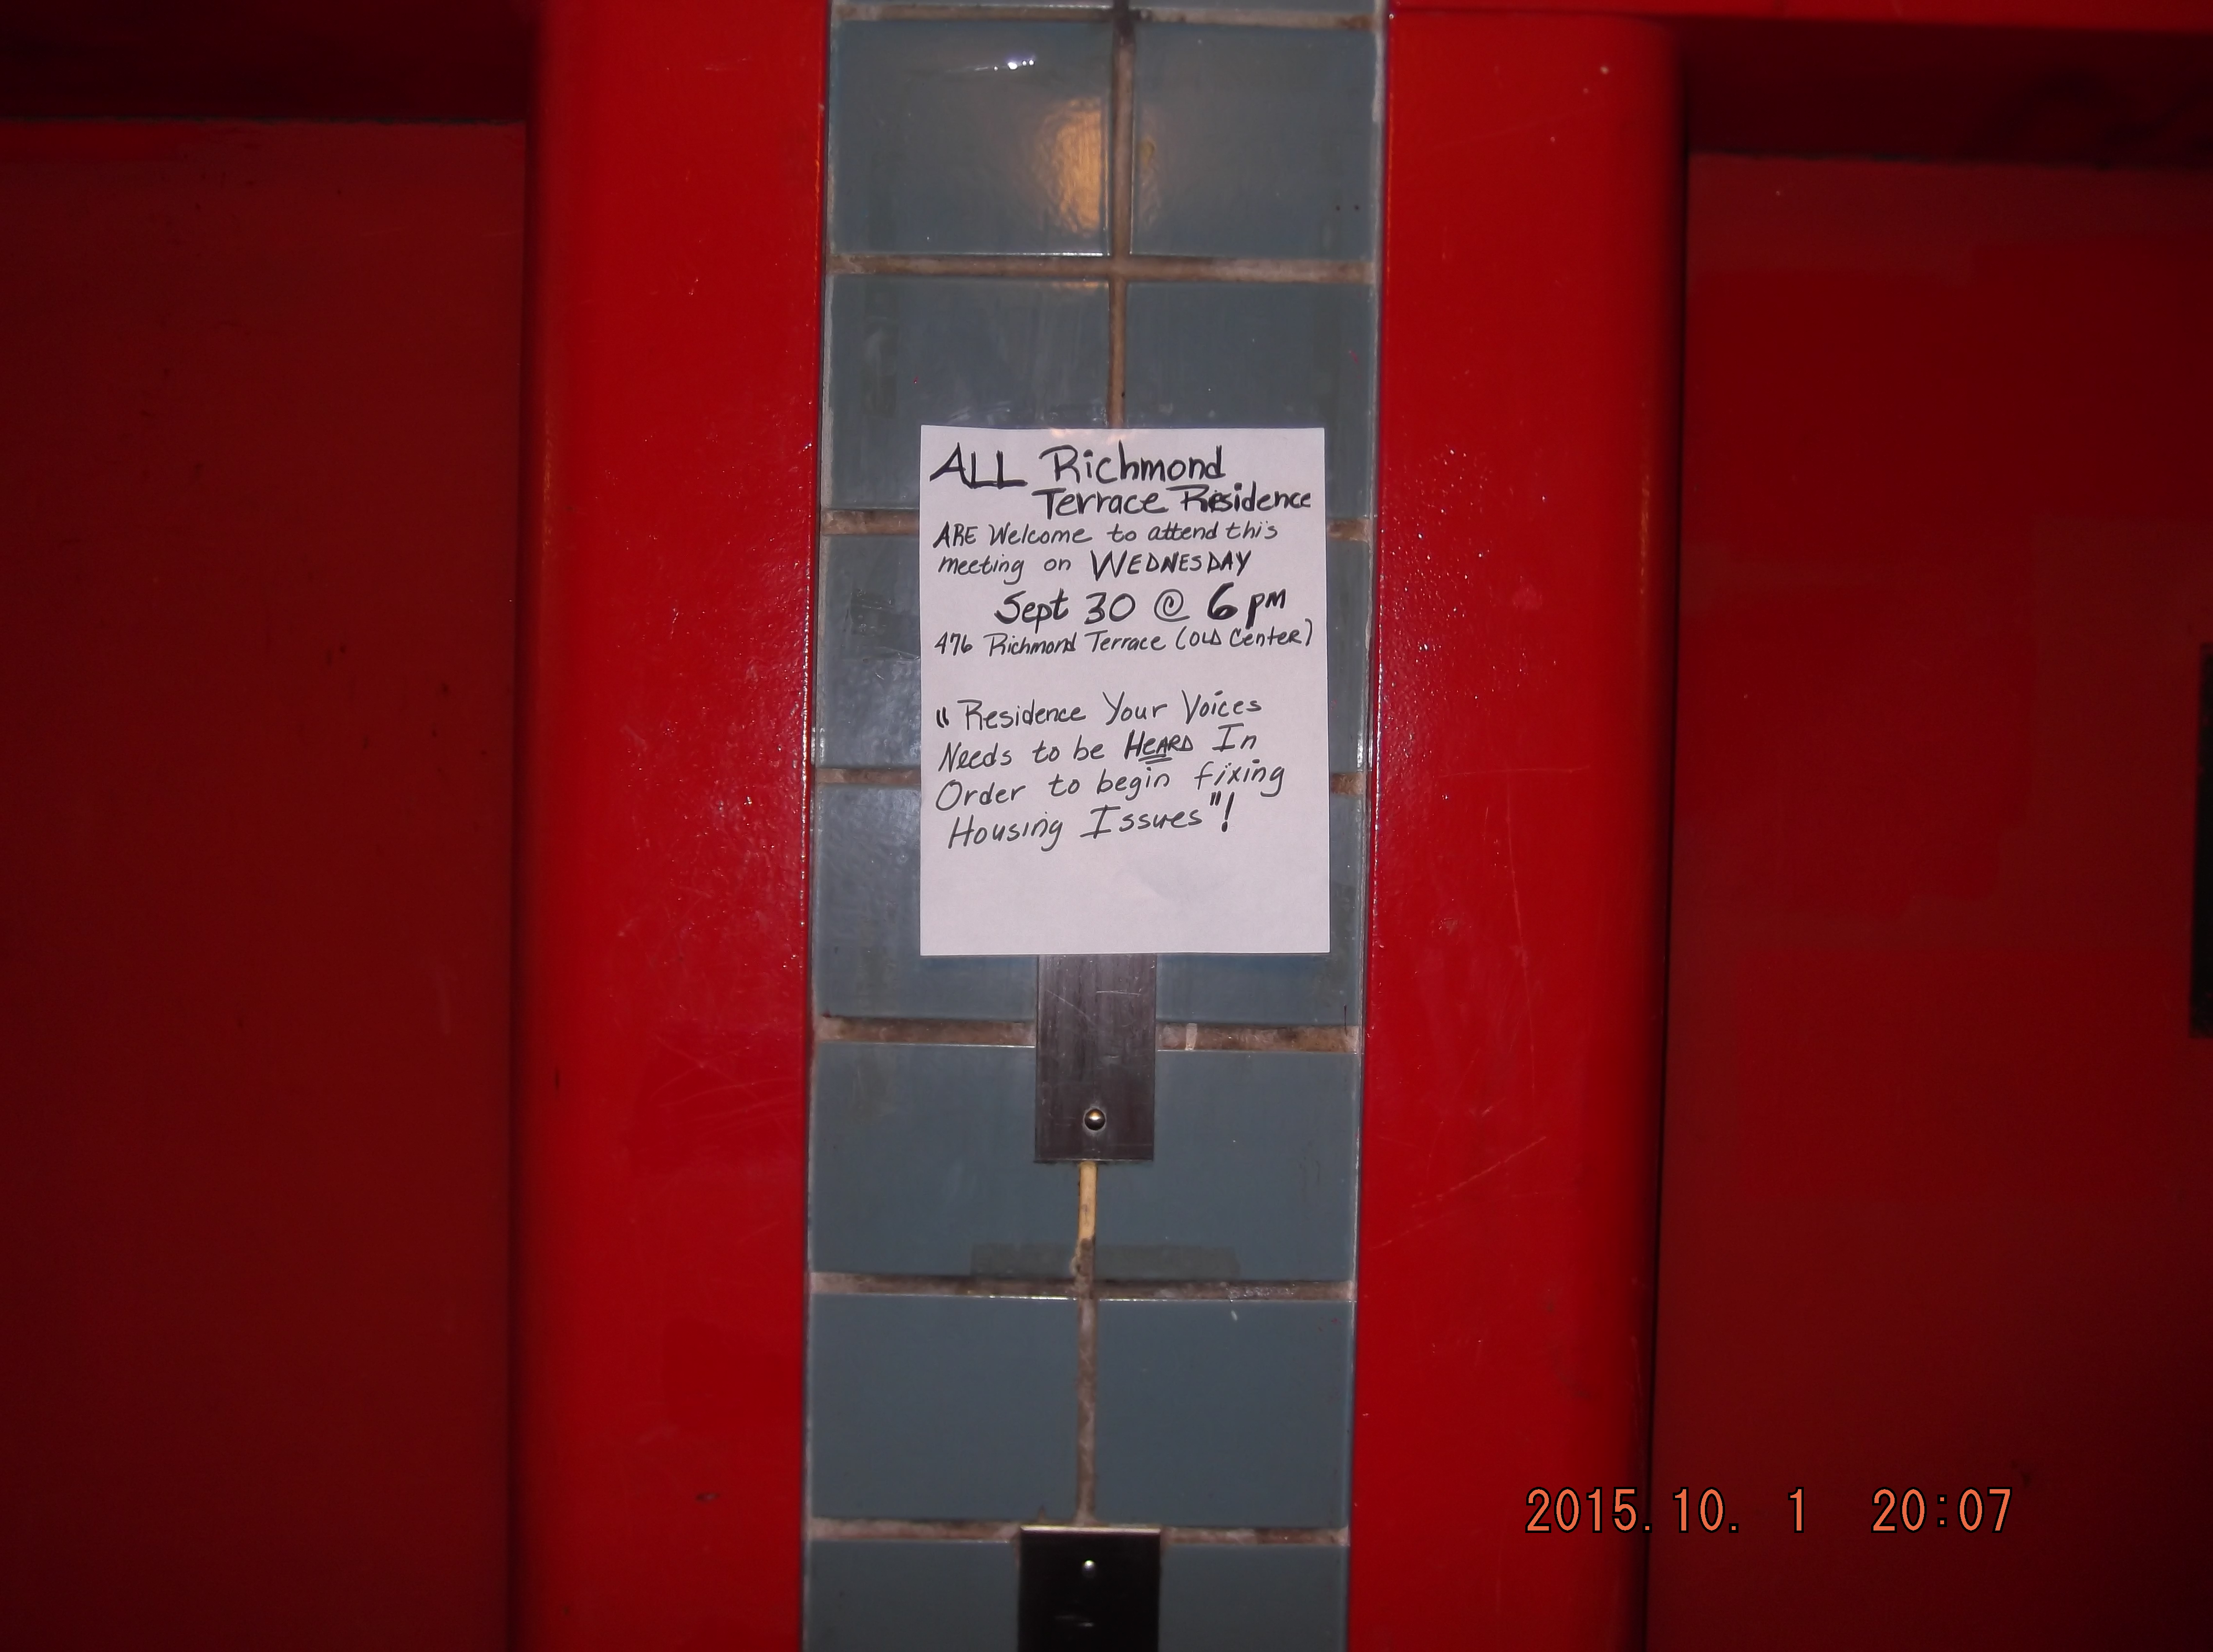 ALL Richmond
Terrace Residence
ARE Welcome to attend this
meeting on WEDNESDAY
Sept 30 @ 6 pm
476 Richmond Terrace (OLD Center)
"Residence Your Voices
Needs to be HEARD In
Order to begin fixing
Housing Issues"!
2015.10. 1 20:07